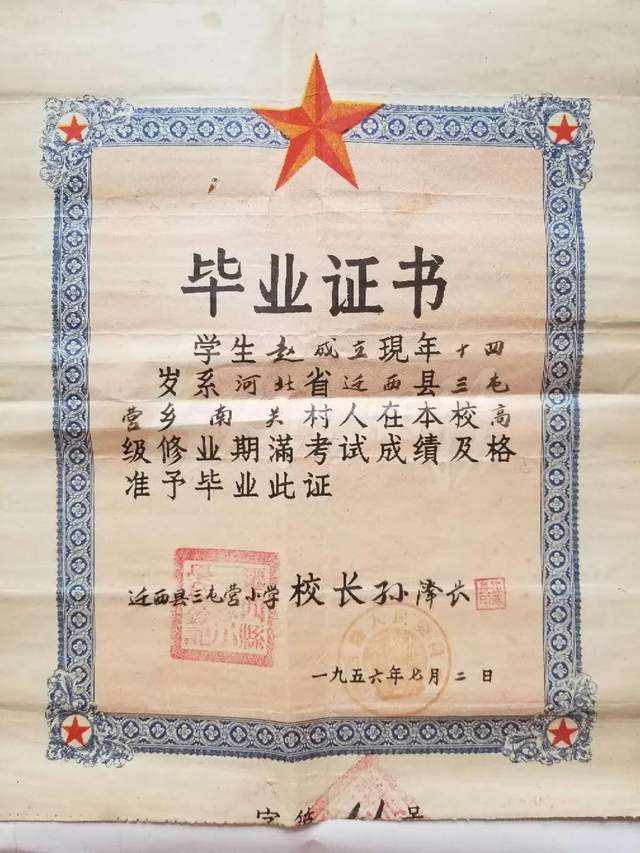 毕业证书
学生赵成立現年十四
岁系河北省迁西县三屯
营乡南关村人在本校高
级修业期滿考试成績及格
准予毕业此证
迁西县三屯营小学校长孙泽长
一九五六年七月二日